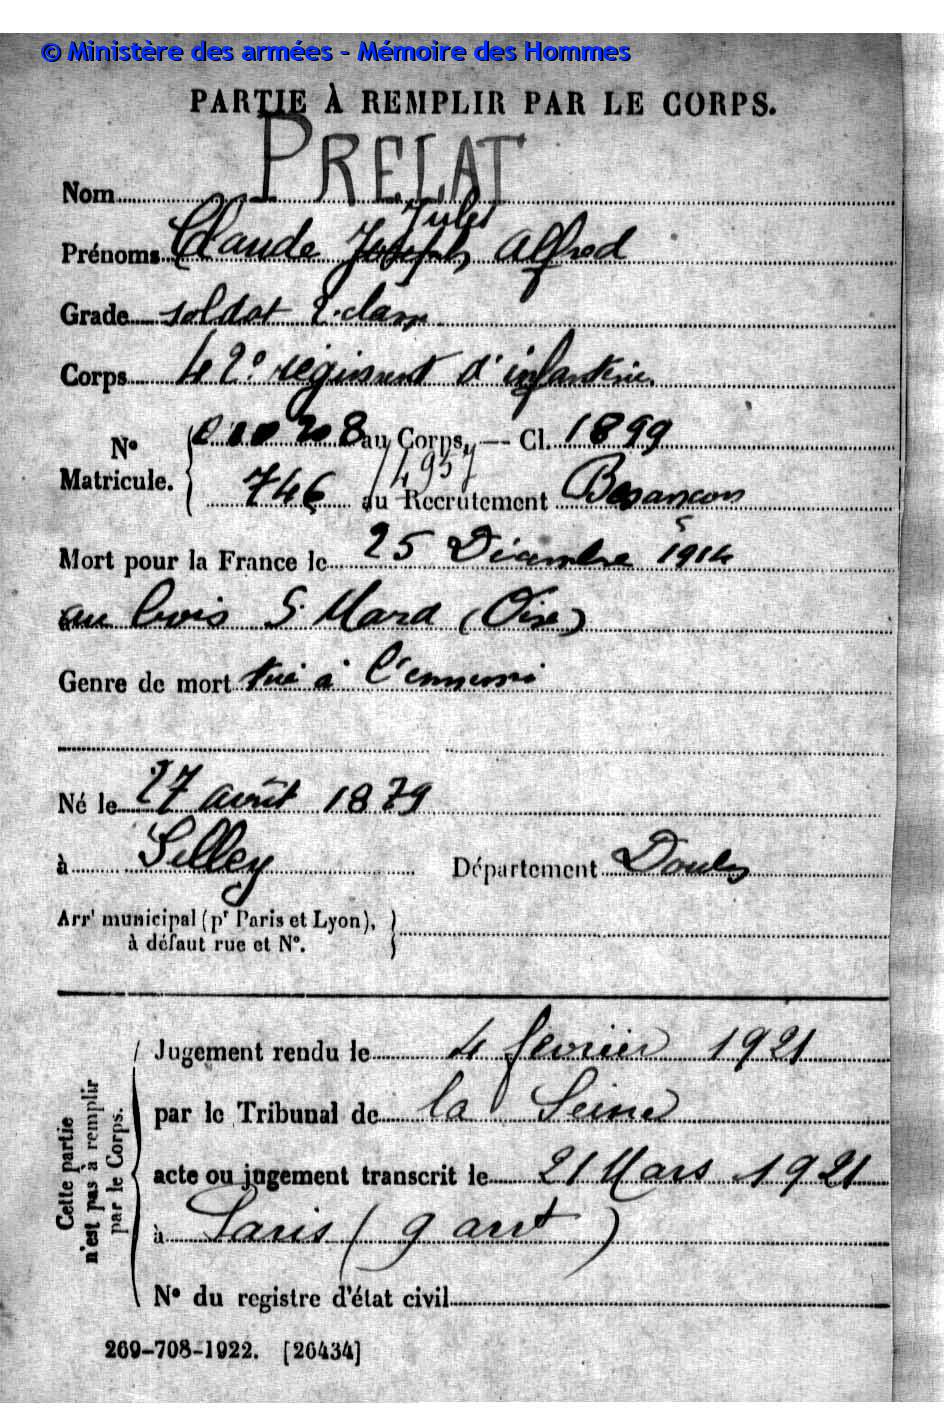 © Ministère des armées - Mémoire des Hommes
PARTIE À REMPLIR PAR LE CORPS.
Nom PRELAT
Jules
Prénoms Claude Joseph, Alfred
Grade soldat 2.classe
Corps 42e régiment d'infanterie.
N° Matricule. 208 au Corps. — Cl. 1899
14957
746 au Recrutement Besançon
Mort pour la France le 25 Décembre 1914
au bois S. Mard (Oise)
Genre de mort tué à l'ennemi
Né le 27 août 1879
à Silley Département Doubs
Arrt municipal (pr Paris et Lyon), à défaut rue et N°.
Cette partie n'est pas à remplir par le Corps.
Jugement rendu le 4 février 1921
par le Tribunal de la Seine
acte ou jugement transcrit le 21 Mars 1921
à Paris (9 arrt)
N° du registre d'état civil
269-708-1922. [26434]